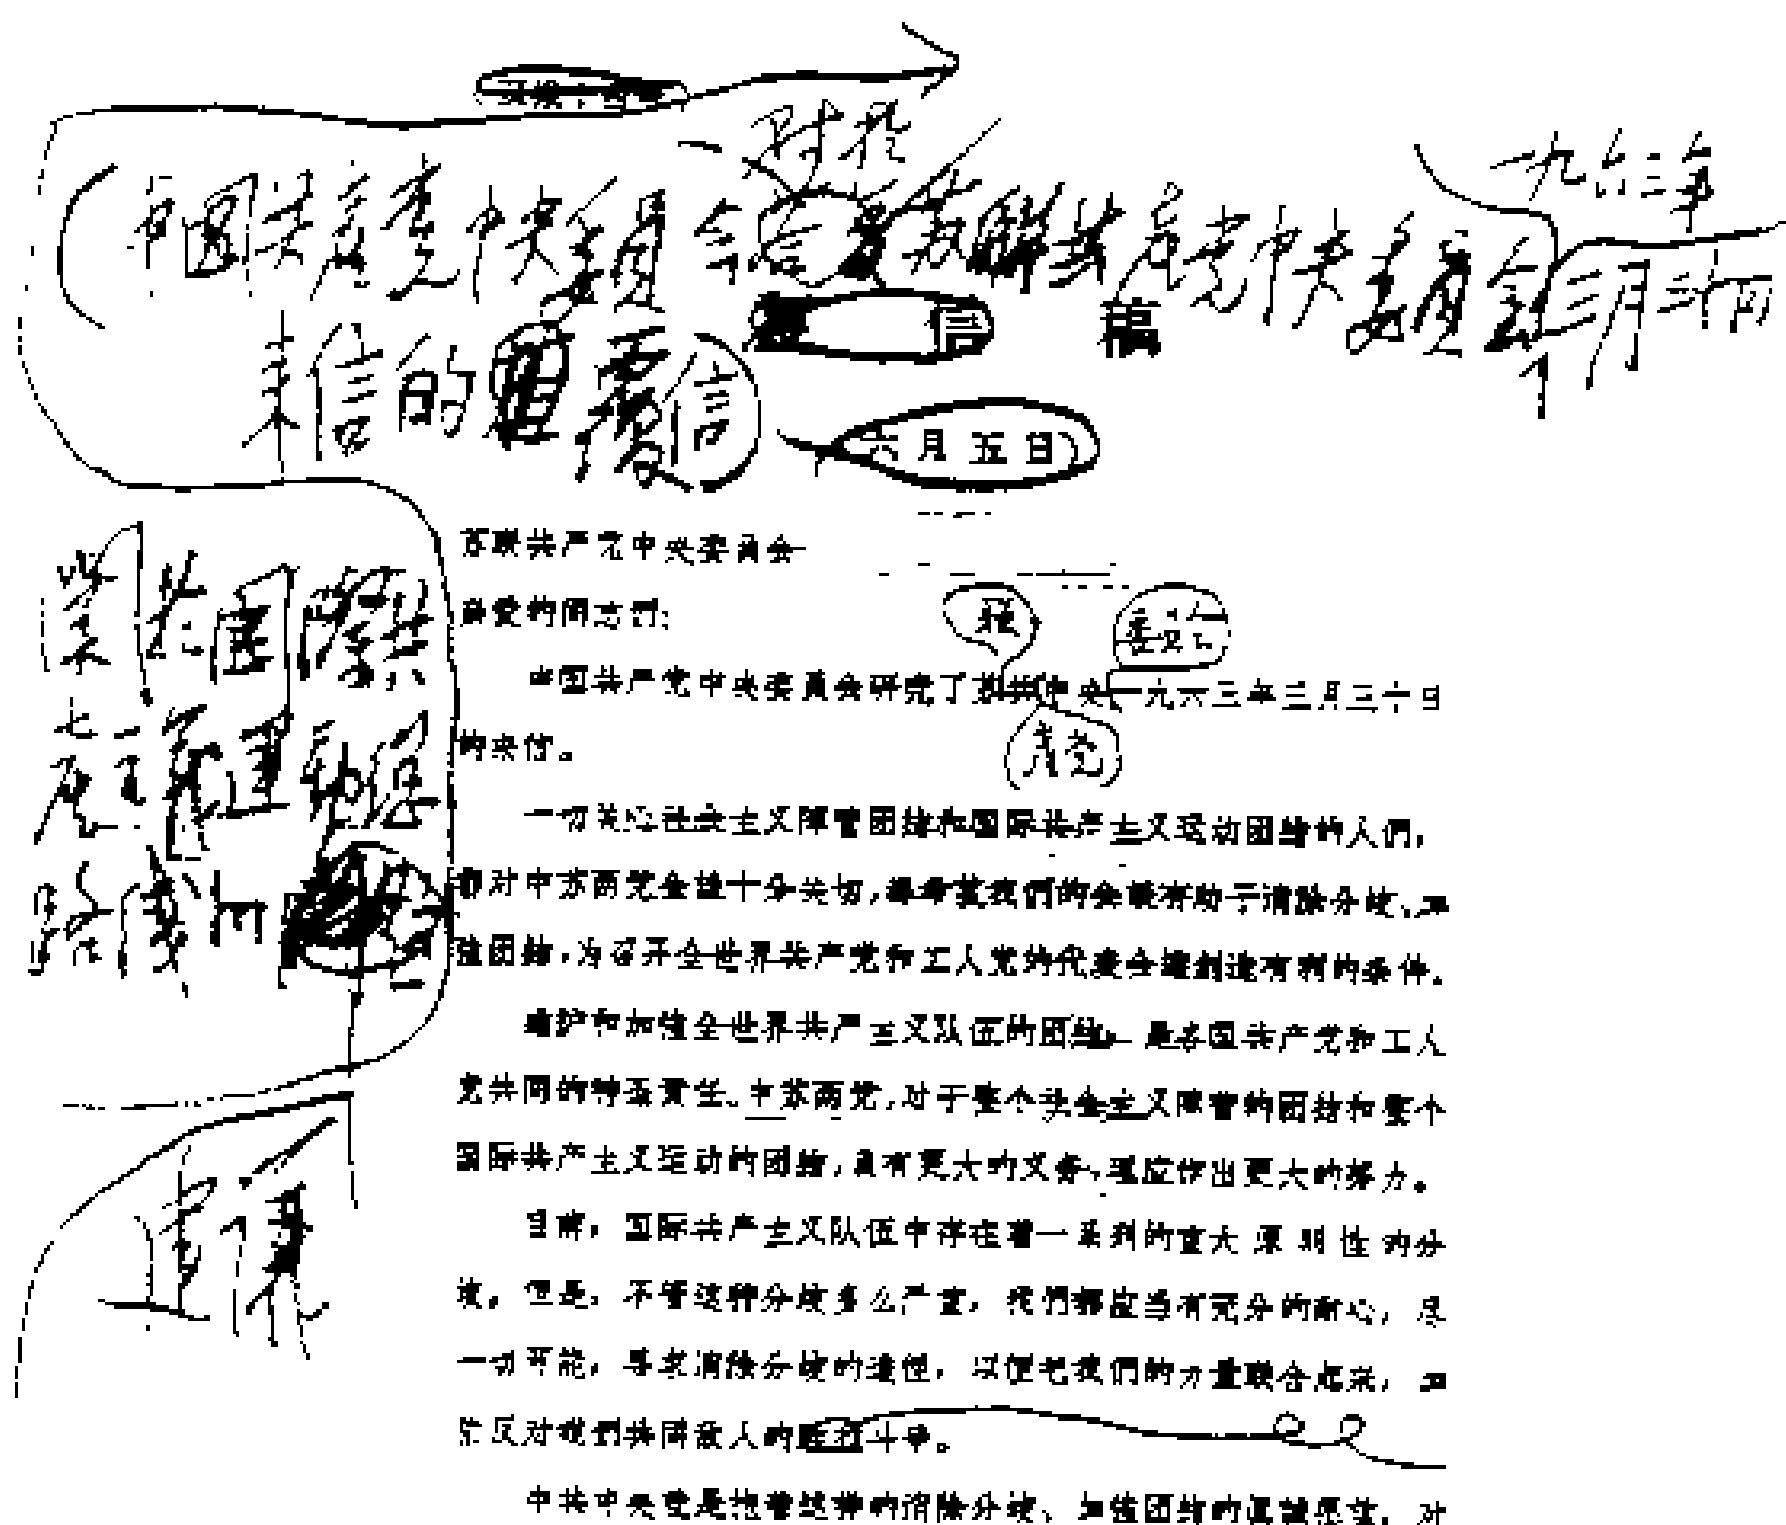 对于
一九六三年
中国共产党中央委员会 苏联共产党中央委员会三月三十日
来信的 覆信
稿
六月五日
关于国际共
产主义运动总
路线的
苏联共产党中央委员会
亲爱的同志们:
委员会
中国共产党中央委员会研究了苏共中央一九六三年三月三十日
产党
的来信。
一切关心社会主义陣营团結和国际共产主义运动团結的人們,
都对中苏两党会談十分关切,都希望我們的会談有助于消除分歧、加
強团結,为召开全世界共产党和工人党的代表会議創造有利的条件。
維护和加強全世界共产主义队伍的团結,是各国共产党和工人
党共同的神圣責任。中苏两党,对于整个社会主义陣营的团結和整个
国际共产主义运动的团結,負有更大的义务,理应作出更大的努力。
目前,国际共产主义队伍中存在着一系列的重大原則性的分
歧。但是,不管这种分歧多么严重,我們都应当有充分的耐心,尽
一切可能,寻求消除分歧的途徑,以便把我們的力量联合起来,加
強反对我們共同敌人的 斗爭。
中共中央就是抱着这样的消除分歧、加強团結的真誠愿望,对